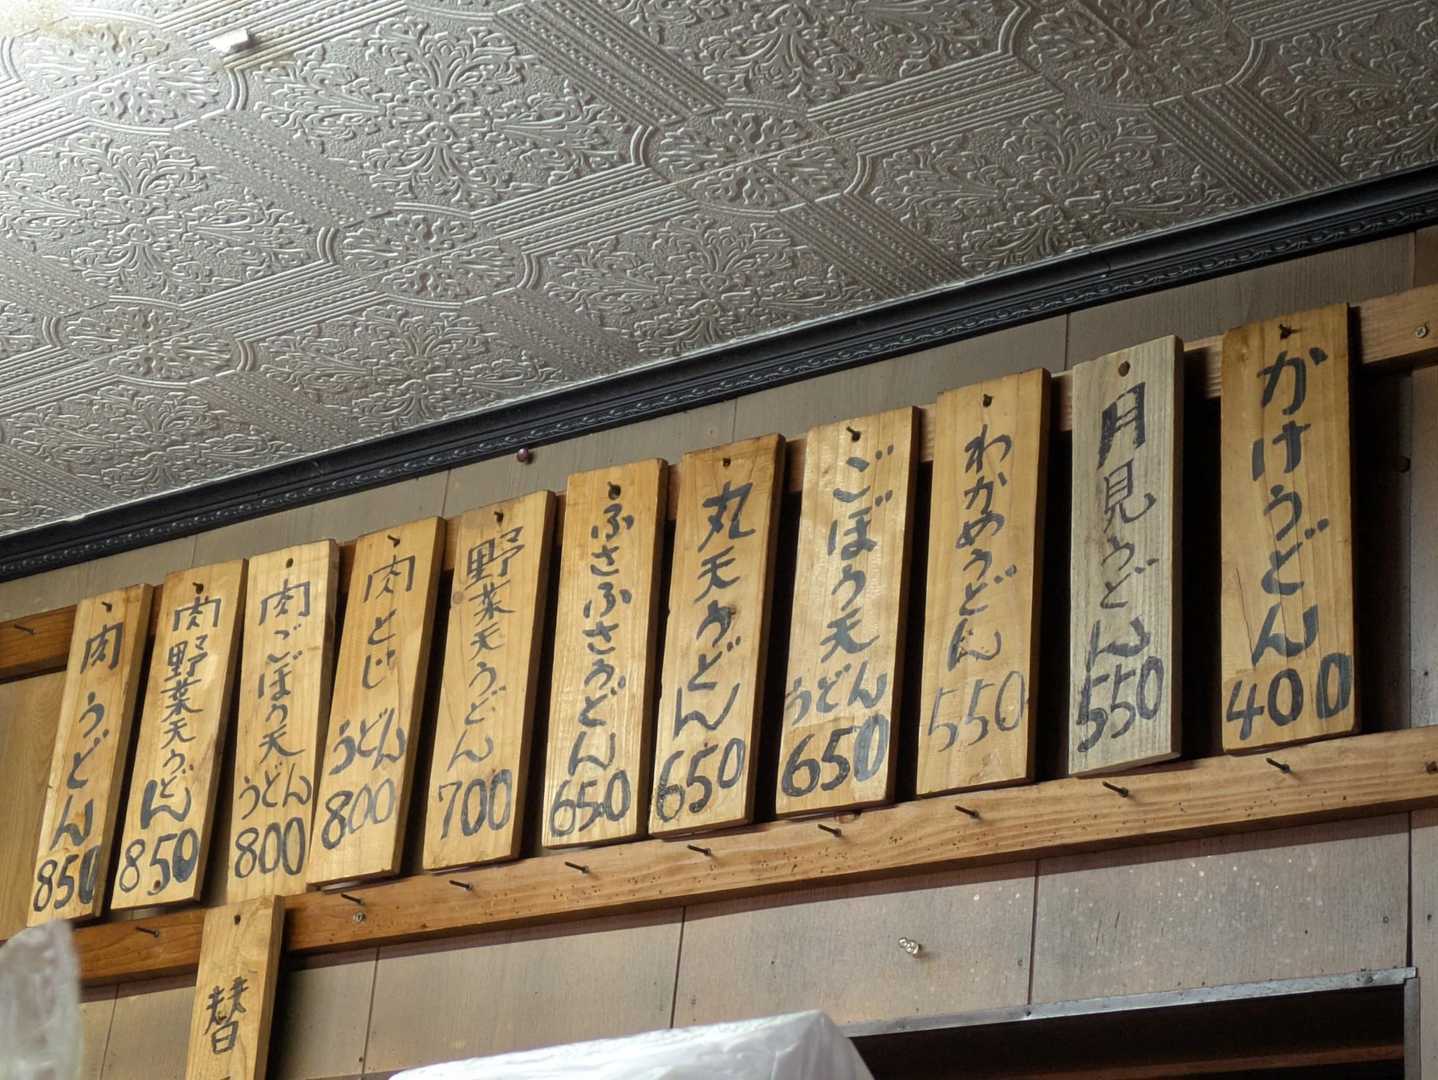 かけうどん 400
月見うどん 550
わかめうどん 550
ごぼう天うどん 650
丸天うどん 650
ふさふさうどん 650
野菜天うどん 700
肉とじうどん 800
肉ごぼう天うどん 800
肉野菜天うどん 850
肉うどん 850
替